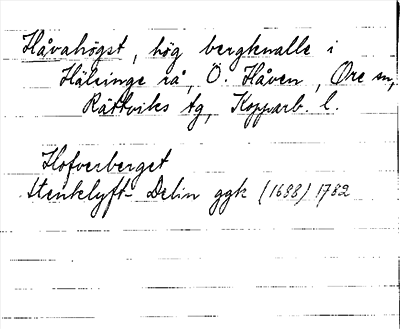 Håvahögst, hög bergknalle i
Hälsinge rå, Ö. Håven, Ore sn,
Rättviks tg, Kopparb. l.
Hofverberget
Stenklyft Delin ggk (1688) 1782